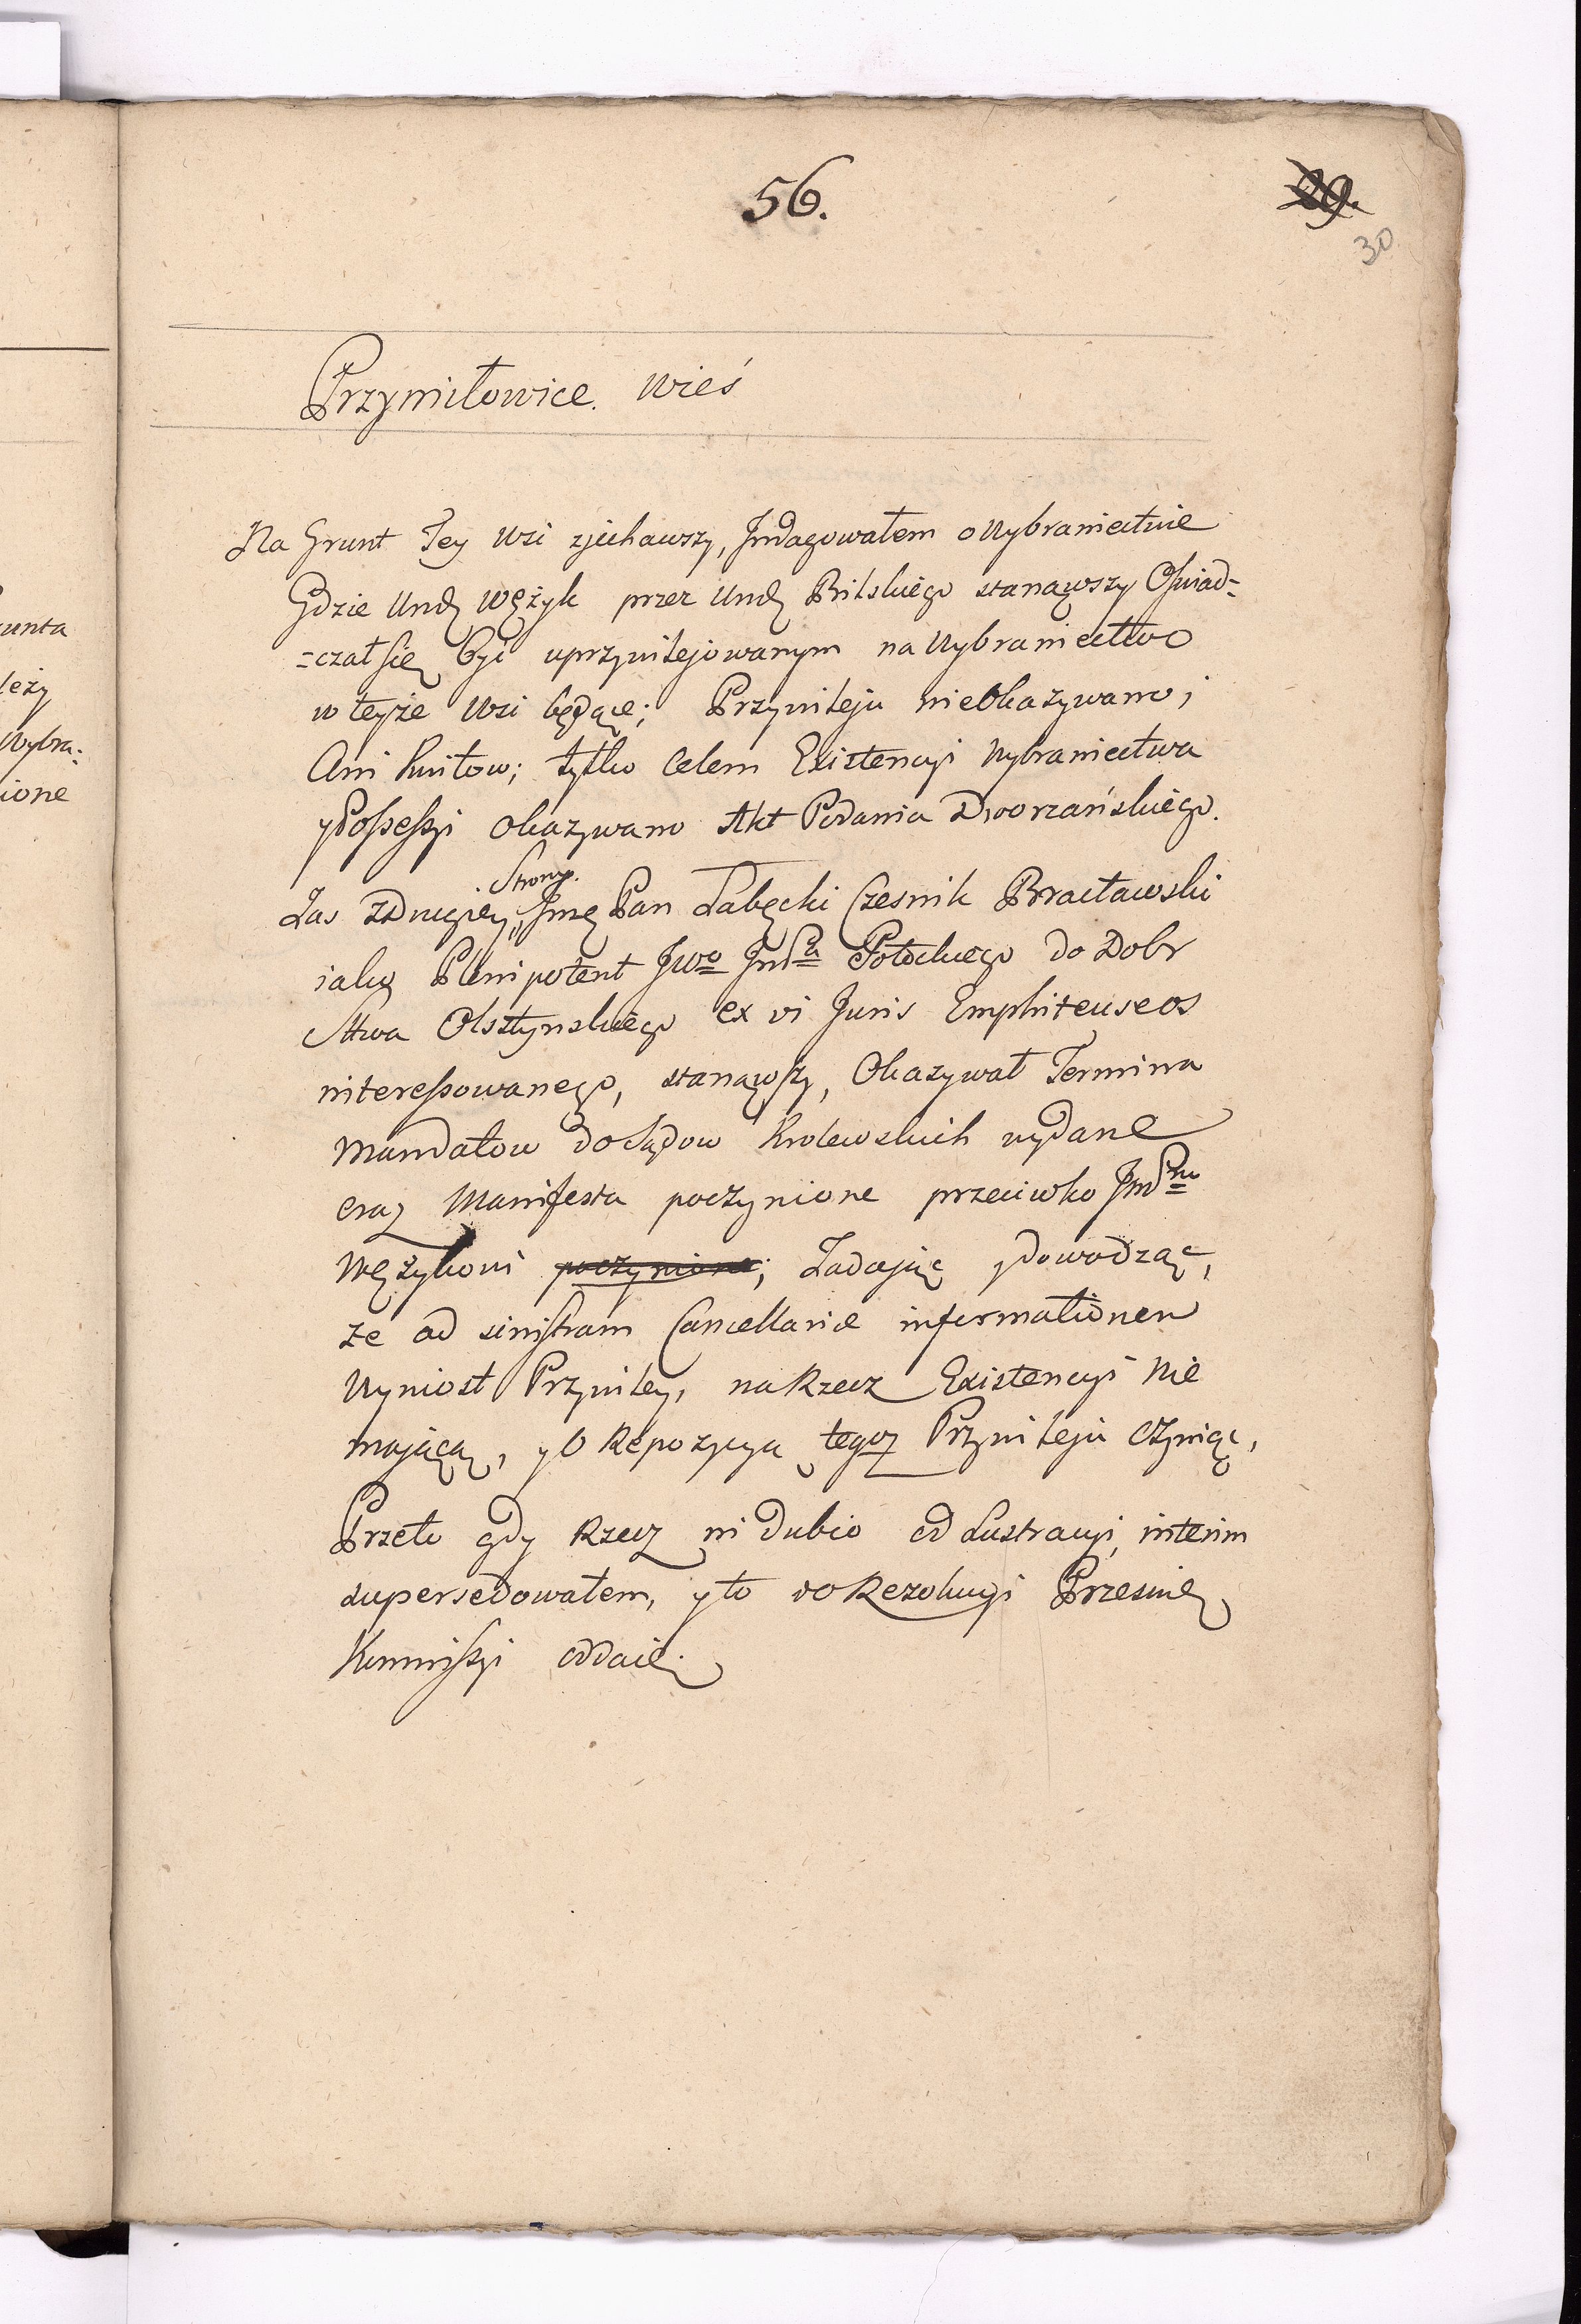 56.
29.
30
Przymiłowice. Wieś
Na Grunt Tey Wsi zjechawszy, Jndagowałem o Wybraniectwie
Gdzie Ur. Wężyk przez Ur. Bilskiego stanąwszy Oświad=
=czał się być uprzywilejowanym na Wybraniectwo
w teyże Wsi będące; Przywileju nieokazywano;
Ani kwitow; tylko Celem Existencyi Wybraniectwa
y Possessyi okazywano Akt Podania Dworzańskiego.
Zas z Drugiey Strony. Jmę Pan Łabęcki Czesnik Bracławski
iako Plenipotent Jwo JmPa Potockiego do Dobr
Sttwa Olsztynskiego ex vi Juris Emphiteuseos
interessowanego, stanąwszy, Okazywał Termina
Mandatow do Sądow Krolewskich wydane
oraz Manifesta poczynione przeciwko JmPnu
Wężykowi poczynione; Zadając y dowodząc,
ze ad sinistram Cancellariæ informationem
Wyniosł Przywiley, na Rzecz Existencyi Nie
mającą, y o Repozycyą tegoz Przywileju czyniąc,
Przeto gdy Rzecz in dubio od Lustracyi, interim
supersedowałem, y to do Rezolucyi Prześwię
Kommissyi oddaię.
unta
leży
Wybra:
ione